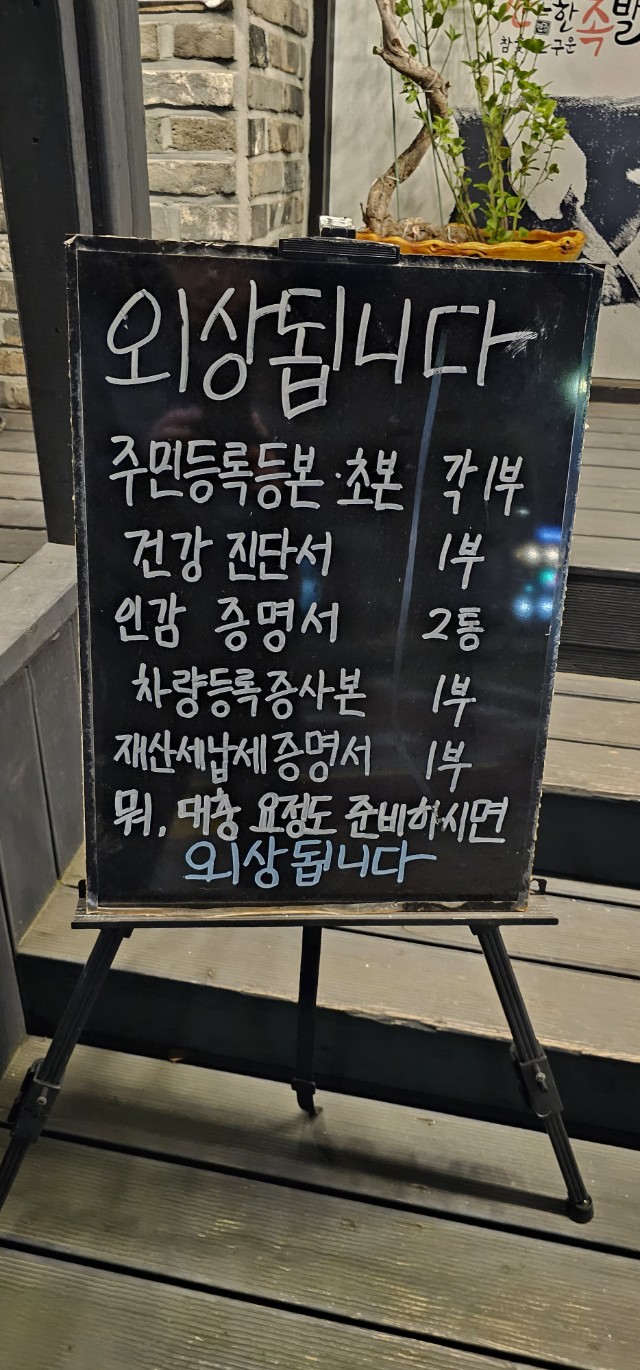 한 족발
구운
외상됩니다
주민등록등본·초본 각1부
건강 진단서 1부
인감 증명서 2통
차량등록증사본 1부
재산세납세증명서 1부
뭐, 대충 요정도 준비하시면
외상됩니다